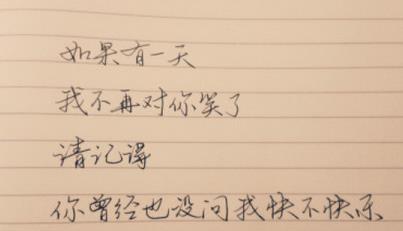 如果有一天
我不再对你笑了
请记得
你曾经也没问我快不快乐